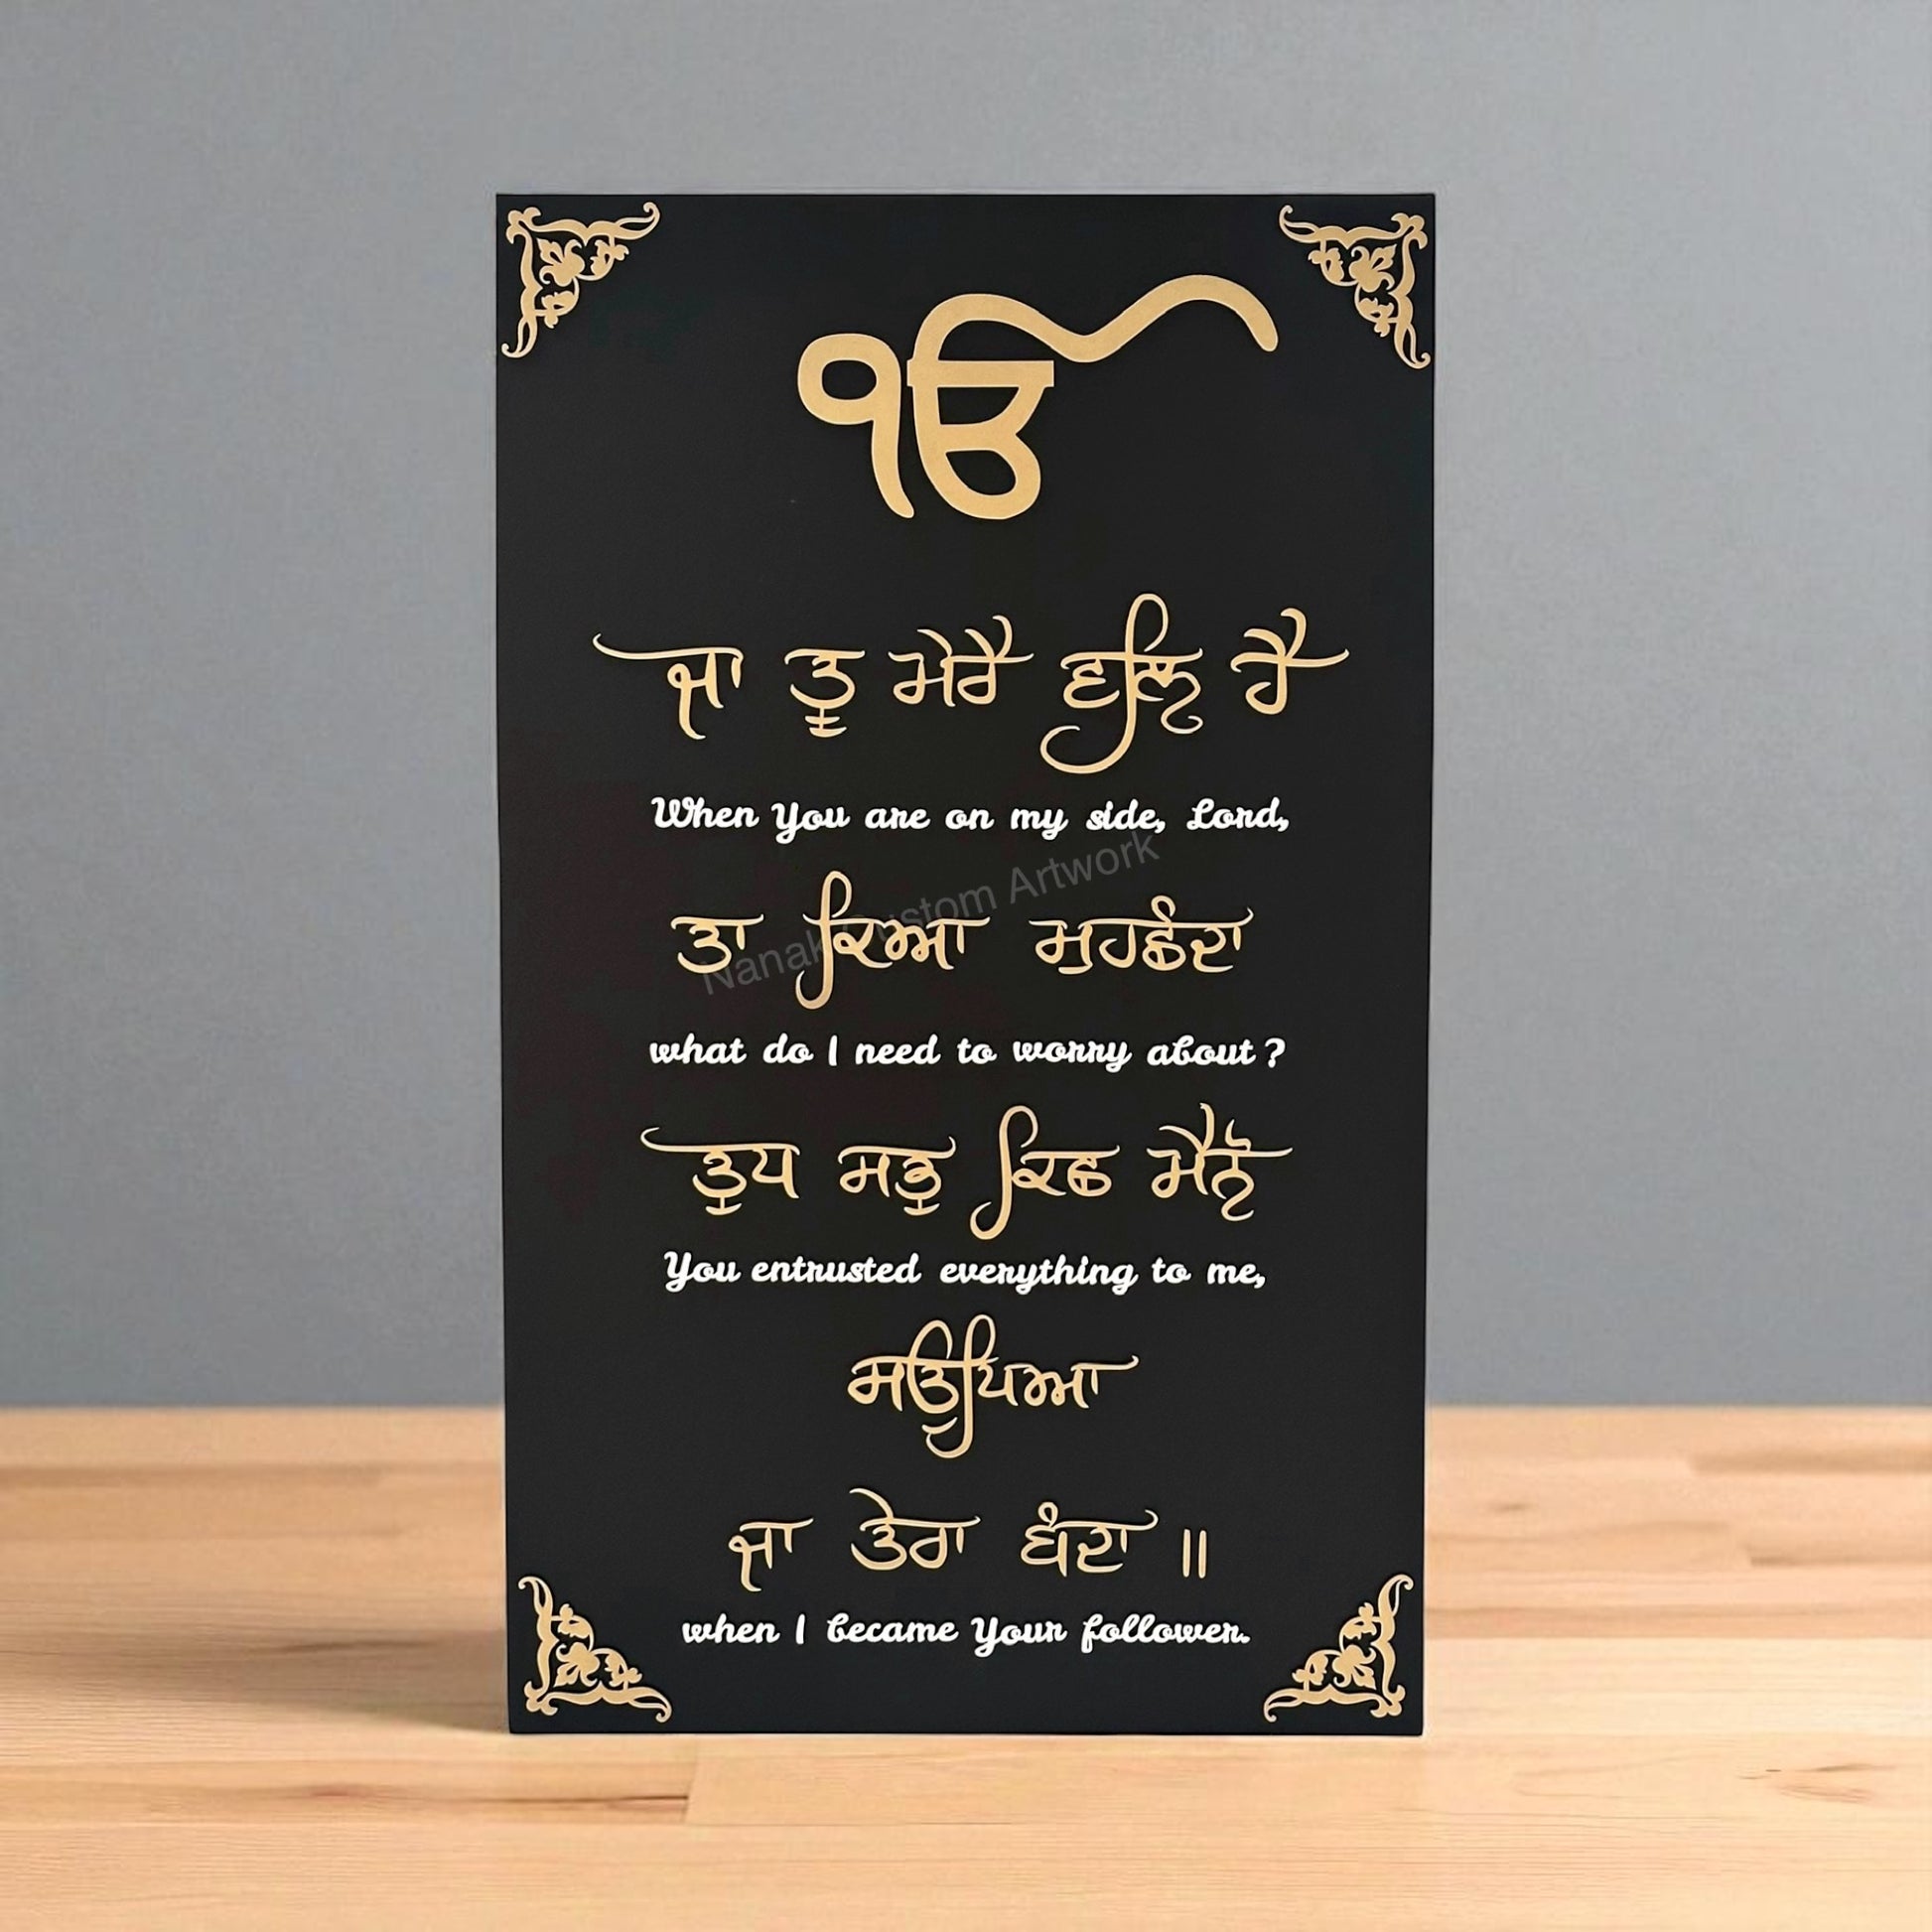 ੴ
ਜਾ ਤੂ ਮੇਰੈ ਵਲਿ ਹੈ
When You are on my side, Lord,
Nanak Custom Artwork
ਤਾ ਕਿਆ ਮੁਹਛੰਦਾ
what do I need to worry about?
ਤੁਧ ਸਭੁ ਕਿਛ ਮੈਨੋ
You entrusted everything to me,
ਸਉਪਿਆ
ਜਾ ਤੇਰਾ ਬੰਦਾ ॥
when I became Your follower.